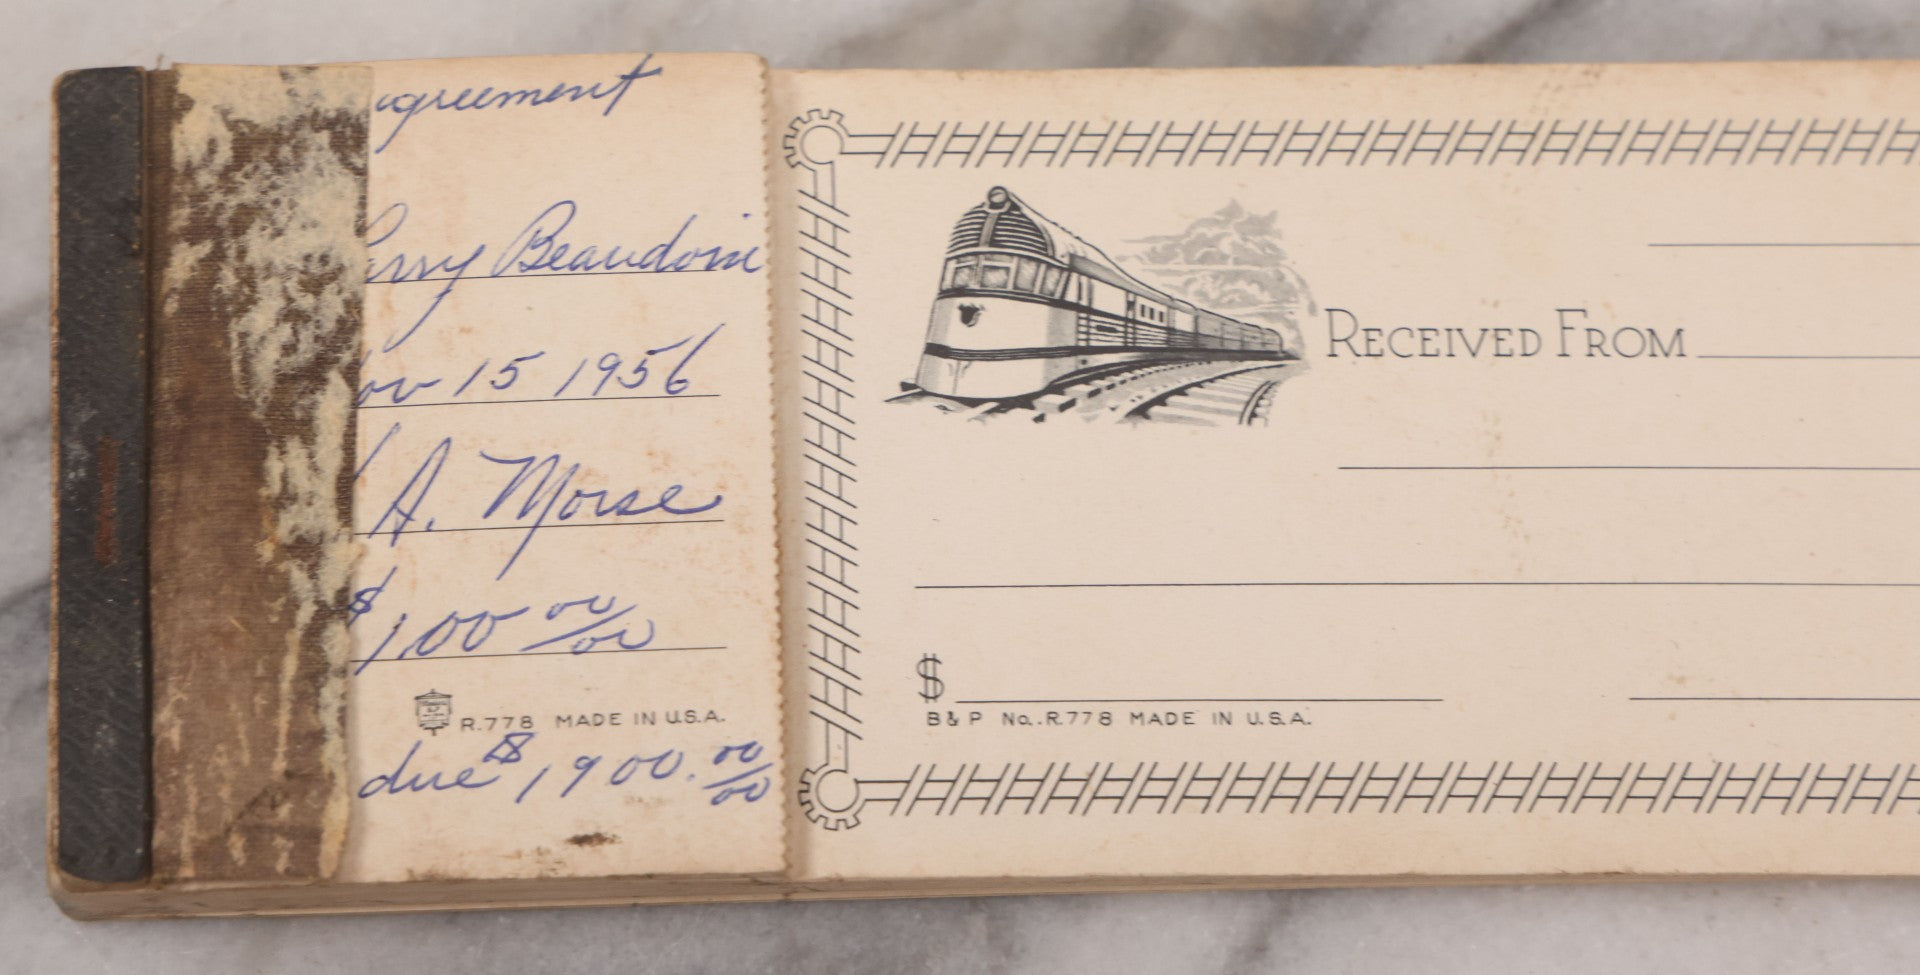 agreement
Beaudoin
15 1956
A. Morse
$100 00/00
R.778 MADE IN U.S.A.
due $1900.00/00
RECEIVED FROM
$
B & P No. R.778 MADE IN U.S.A.